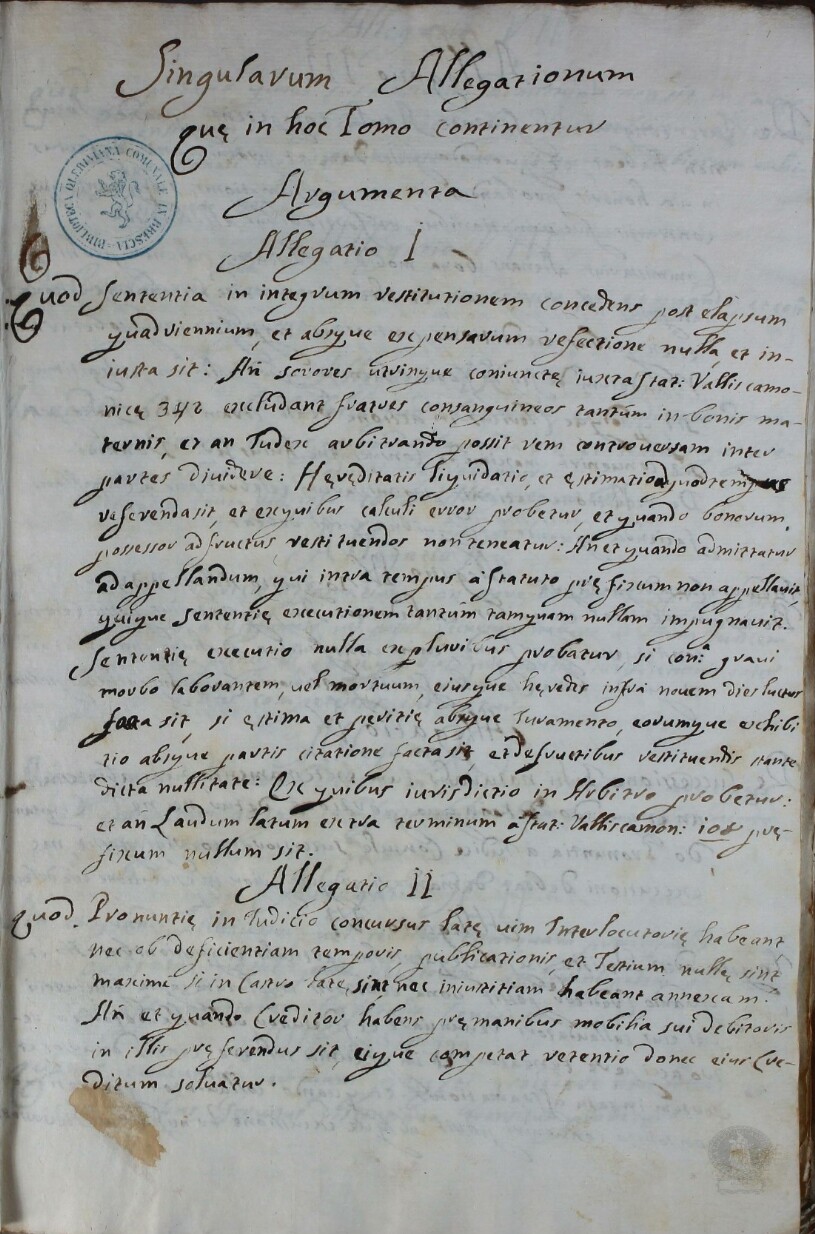 Singularum Allegationum
Quę in hoc Tomo continentur
BIBLIOTECA QUERINIANA COMUNALE IN BRESCIA
Argumenta
Allegatio I
Quod Sententia in integrum restitutionem concedens post elapsum
quadriennium, et absque expensarum refectione nulla, et in-
iusta sit: An sorores utrinque coniunctę iuxta Stat: Valliscamo-
nicę 342 excludant fratres consanguineos tantum in bonis ma-
ternis, et an Iudex arbitrando possit rem controuersam inter
partes diuidere: Hęreditatis liquidatio, et ęstimatio ad quod tempus
referenda sit, et ex quibus calculi error probetur, et quando bonorum
possessor ad fructus restituendos non teneatur: An et quando admittatur
ad appellandum, qui intra tempus à statuto pręfixum non appellauit,
quique sententię executionem tantum tamquam nullam impugnauit.
Sententię executio nulla ex pluribus probatur, si con: graui
morbo laborantem, uel mortuum, eiusque hęredes infra nouem dies luctus
facta sit, si ęstima et peritię absque Iuramento, eorumque exhibi
tio absque partis citatione facta sit et de fructibus restituendis stante
dicta nullitate: Ex quibus iurisdictio in Arbitro probetur:
et an Laudum latum extra terminum à Stat: Valliscamon: 108 prę-
fixum nullum sit.
Allegatio II
Quod. Pronuntię in Iudicio concursus latę uim Interlocutorię habeant
nec ob deficientiam temporis, publicationis, et Testium nullę sint
maxime si in Castro latę sint, nec iniustitiam habeant annexam.
An et quando Creditor habens prę manibus mobilia sui debitoris
in illis pręferendus sit, eique competat retentio donec eius Cre-
ditum soluatur.